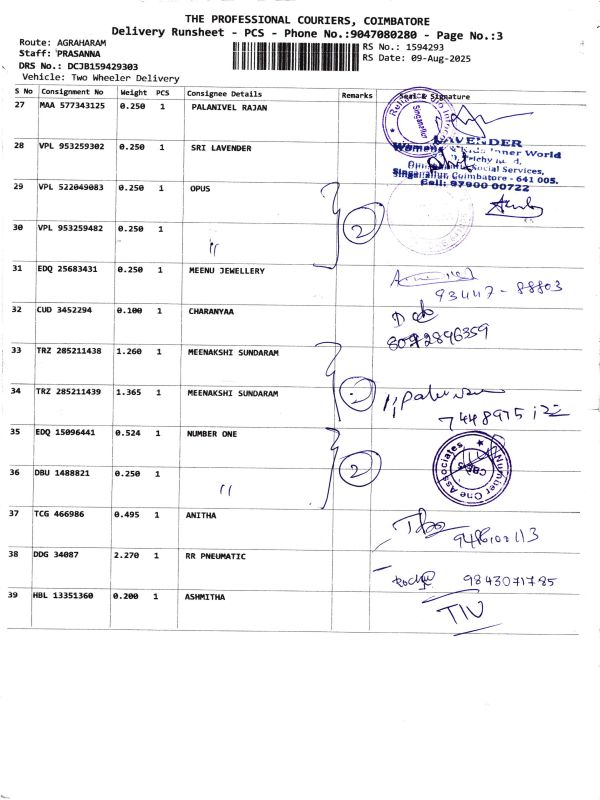 THE PROFESSIONAL COURIERS, COIMBATORE
Delivery Runsheet - PCS - Phone No.:9047080280 - Page No.:3
Route: AGRAHARAM
RS No.: 1594293
Staff: 'PRASANNA
RS Date: 09-Aug-2025
DRS No.: DCJB159429303
Vehicle: Two Wheeler Delivery
S No Consignment No Weight PCS Consignee Details Remarks Seal & Signature
27 MAA 577343125 0.250 1 PALANIVEL RAJAN
Singanallur
28 VPL 953259302 0.250 1 SRI LAVENDER
LAVENDER
Womens & Kids Inner World
Trichy
Social Services,
Singanallur, Coimbatore - 641 005.
Cell: 97900 00722
29 VPL 522049083 0.250 1 OPUS
2
30 VPL 953259482 0.250 1 "
31 EDQ 25683431 0.250 1 MEENU JEWELLERY
93447-88803
32 CUD 3452294 0.100 1 CHARANYAA
33 TRZ 285211438 1.260 1 MEENAKSHI SUNDARAM
34 TRZ 285211439 1.365 1 MEENAKSHI SUNDARAM
35 EDQ 15096441 0.524 1 NUMBER ONE
2
Number One Associates
CBE-5
36 DBU 1488821 0.250 1 "
37 TCG 466986 0.495 1 ANITHA
38 DDG 34087 2.270 1 RR PNEUMATIC
9843071785
39 HBL 13351360 0.200 1 ASHMITHA